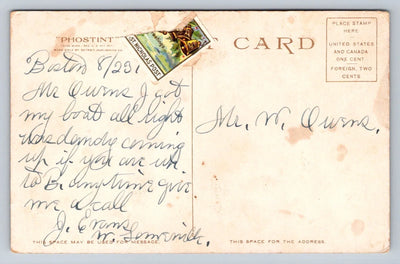 "PHOSTINT"
CARD
ST NICHOLAS POST
PLACE STAMP
HERE
UNITED STATES
AND CANADA
ONE CENT
FOREIGN, TWO
CENTS
Boston 8/23,
Mr Owens I got
my boat all right
was dandy coming
up if you are in
to B. anytime give
me a call
J. Evans
W. Somerville.
Mr. W. Owens.
THIS SPACE MAY BE USED FOR MESSAGE.
THIS SPACE IS FOR THE ADDRESS.